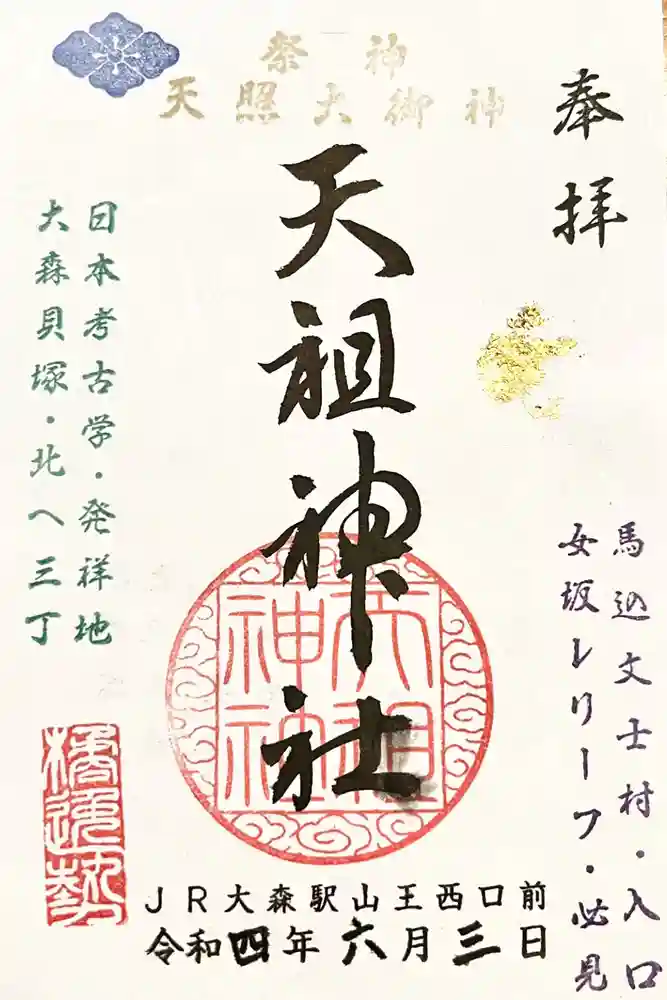 奉拝
祭神
天照大御神
天祖神社
馬込文士村・入口
女坂レリーフ・必見
日本考古学・発祥地
大森貝塚・北へ三丁
天祖神社
開運勢
JR大森駅山王西口前
令和四年六月三日